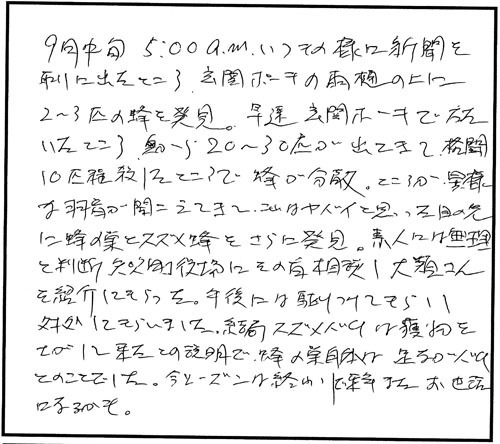 9月中旬 5:00 a.m. いつもの様に新聞を
取りに出たところ 玄関ポーチの雨樋の上に
2〜3匹の蜂を発見。早速 玄関ホーキで
いたところ 20〜30匹が出てきて、格闘
10匹程殺したところで蜂が分散。ところが、異様
な羽音が聞こえてきて、これはヤバイと思った目の先
に蜂の巣とスズメ蜂をさらに発見。素人には無理
と判断 役場にその旨相談し大類さん
を紹介してもらった。午後には駆けつけてもらい
対処してもらいました。結局スズメバチは獲物を
さがしに来たとの説明で、蜂の巣自体は バチ
とのことでした。今シーズンは終わり 来年また お世話
になるかも。